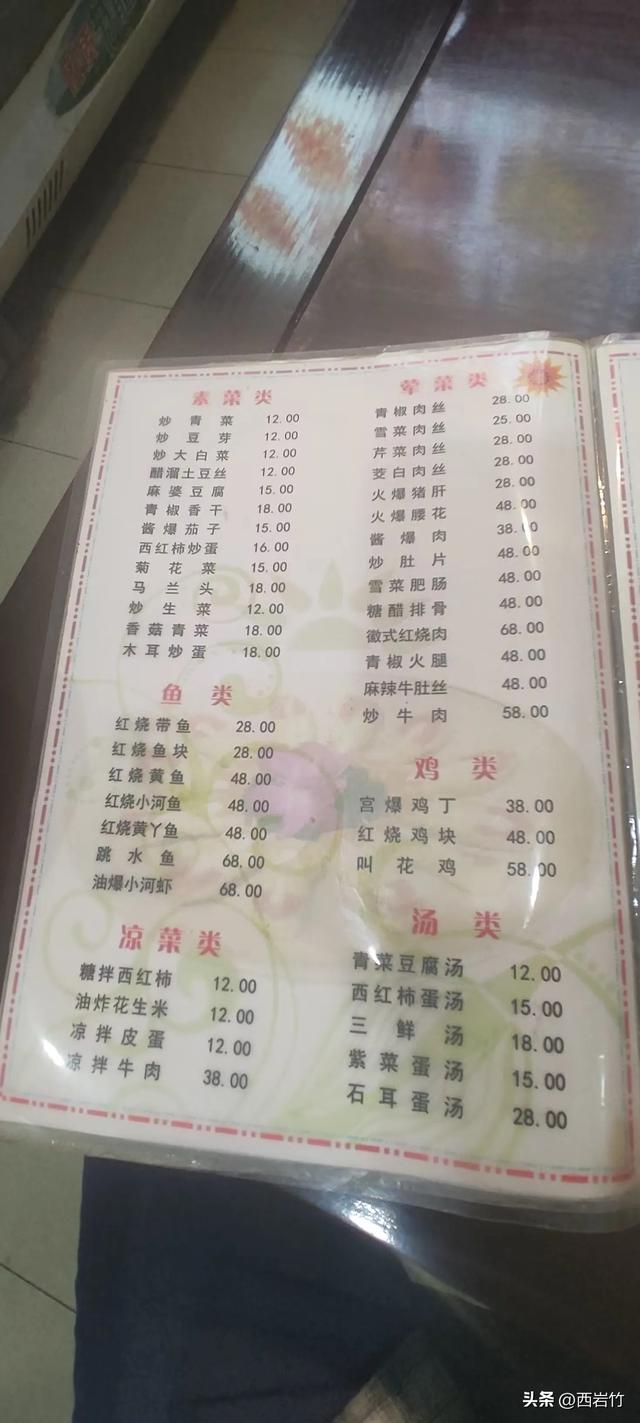 素菜类
炒青菜 12.00
炒豆芽 12.00
炒大白菜 12.00
醋溜土豆丝 12.00
麻婆豆腐 15.00
青椒香干 18.00
酱爆茄子 15.00
西红柿炒蛋 16.00
菊花菜 15.00
马兰头 18.00
炒生菜 12.00
香菇青菜 18.00
木耳炒蛋 18.00
鱼类
红烧带鱼 28.00
红烧鱼块 28.00
红烧黄鱼 48.00
红烧小河鱼 48.00
红烧黄丫鱼 48.00
跳水鱼 68.00
油爆小河虾 68.00
凉菜类
糖拌西红柿 12.00
油炸花生米 12.00
凉拌皮蛋 12.00
凉拌牛肉 38.00
荤菜类
青椒肉丝 28.00
雪菜肉丝 25.00
芹菜肉丝 28.00
茭白肉丝 28.00
火爆猪肝 28.00
火爆腰花 48.00
酱爆肉 38.00
炒肚片 48.00
雪菜肥肠 48.00
糖醋排骨 48.00
徽式红烧肉 68.00
青椒火腿 48.00
麻辣牛肚丝 48.00
炒牛肉 58.00
鸡类
宫爆鸡丁 38.00
红烧鸡块 48.00
叫花鸡 58.00
汤类
青菜豆腐汤 12.00
西红柿蛋汤 15.00
三鲜汤 18.00
紫菜蛋汤 15.00
石耳蛋汤 28.00
头条 @西岩竹